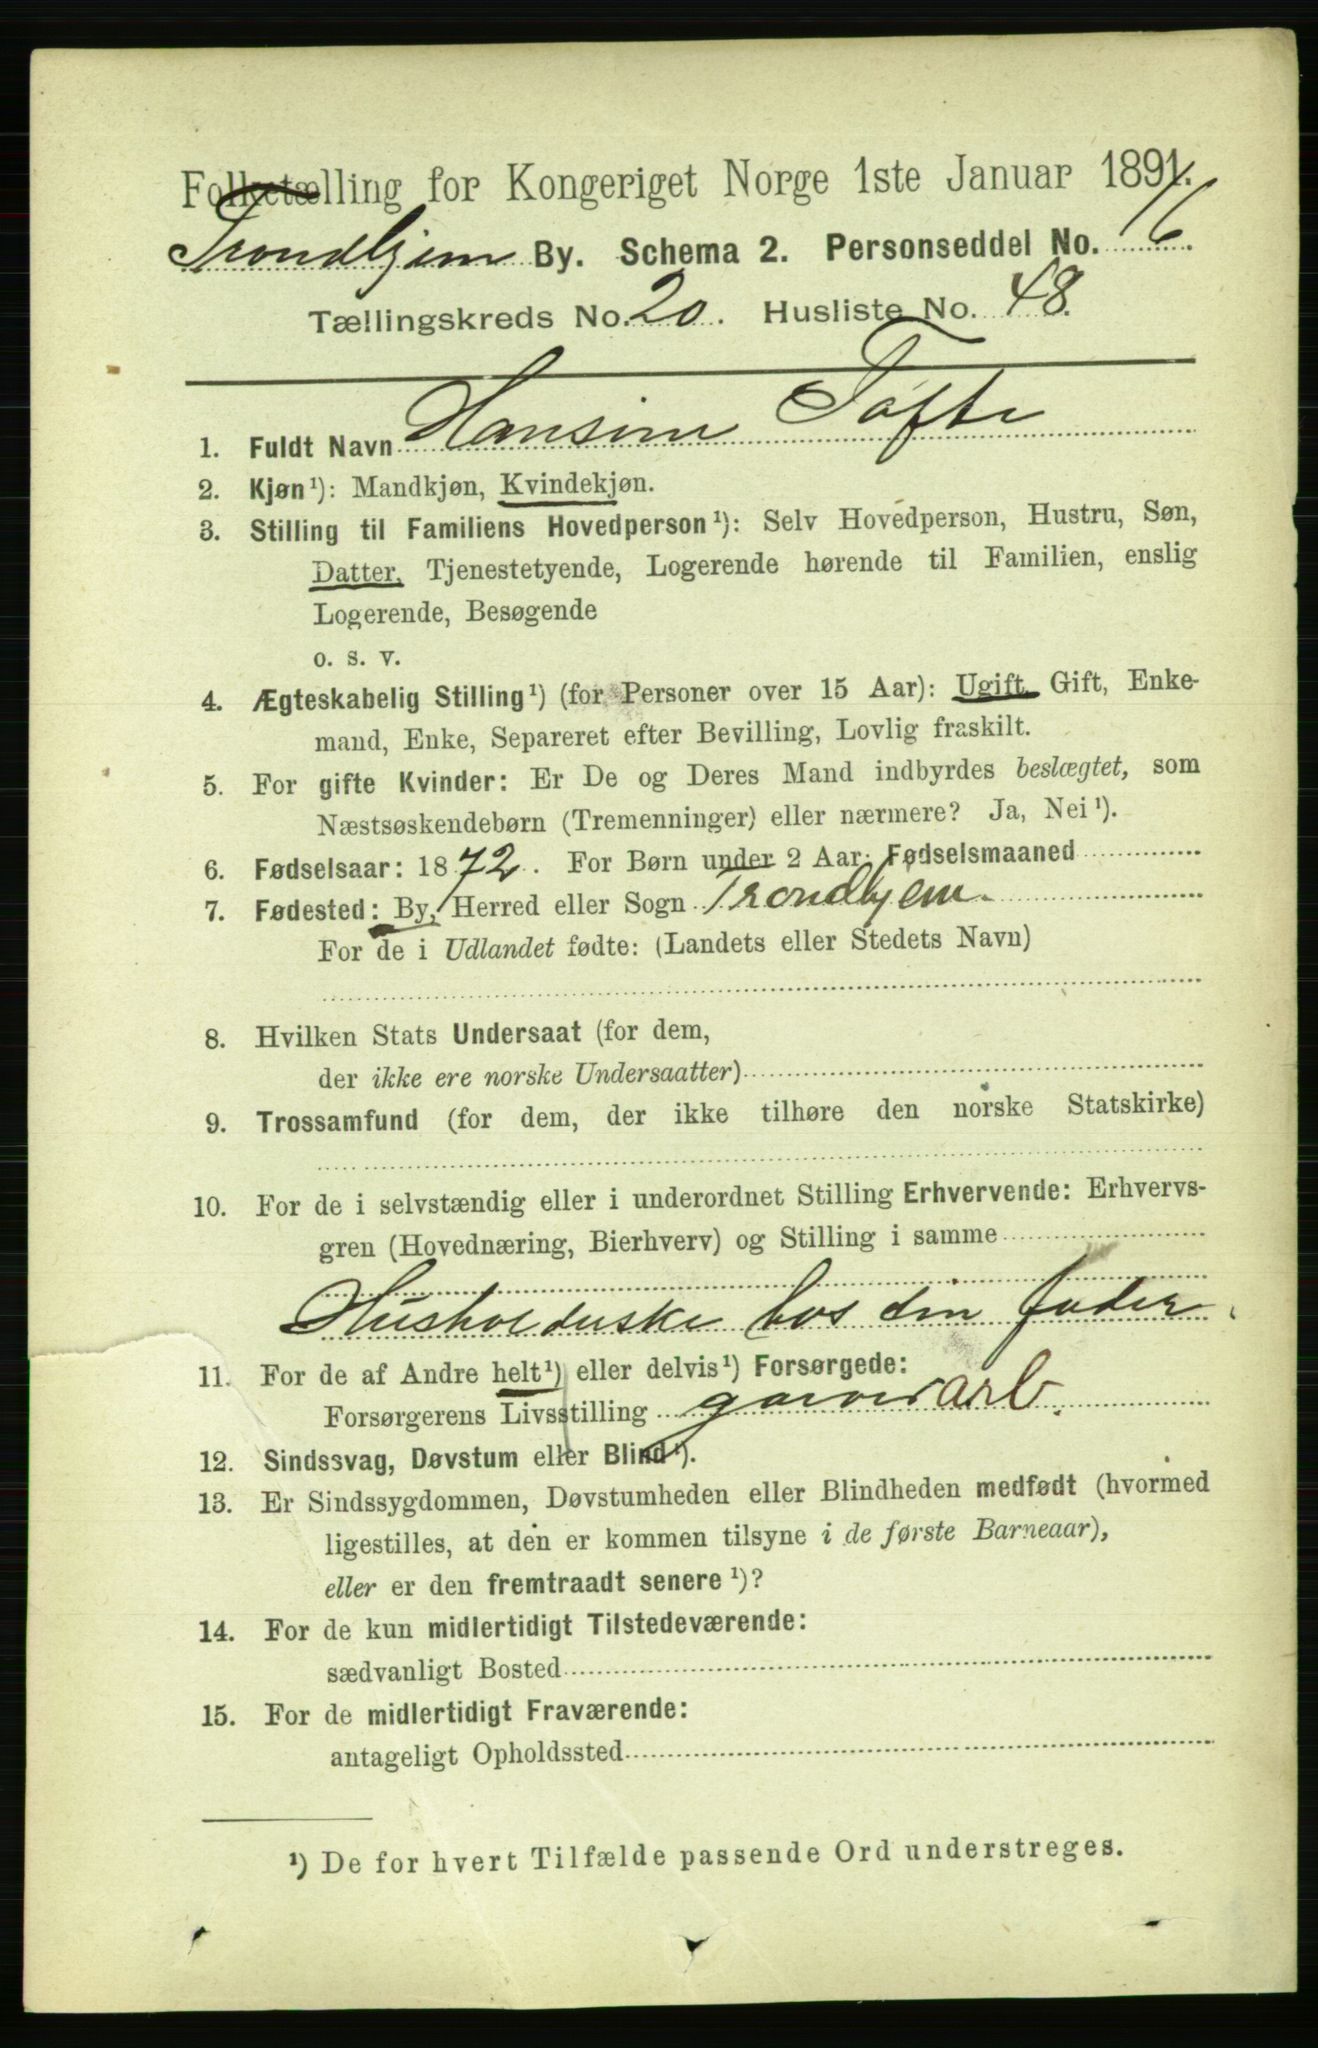 Folketælling for Kongeriget Norge 1ste Januar 1891.
Trondhjem By. Schema 2. Personseddel No. 16.
Tællingskreds No. 20. Husliste No. 48.
1. Fuldt Navn Hansine Tofte
2. Kjøn¹): Mandkjøn, Kvindekjøn.
3. Stilling til Familiens Hovedperson¹): Selv Hovedperson, Hustru, Søn,
Datter, Tjenestetyende, Logerende hørende til Familien, enslig
Logerende, Besøgende
o. s. v.
4. Ægteskabelig Stilling¹) (for Personer over 15 Aar): Ugift, Gift, Enke-
mand, Enke, Separeret efter Bevilling, Lovlig fraskilt.
5. For gifte Kvinder: Er De og Deres Mand indbyrdes beslægtet, som
Næstsøskendebørn (Tremenninger) eller nærmere? Ja, Nei¹).
6. Fødselsaar: 1872. For Børn under 2 Aar: Fødselsmaaned
7. Fødested: By, Herred eller Sogn Trondhjem.
For de i Udlandet fødte: (Landets eller Stedets Navn)
8. Hvilken Stats Undersaat (for dem,
der ikke ere norske Undersaatter)
9. Trossamfund (for dem, der ikke tilhøre den norske Statskirke)
10. For de i selvstændig eller i underordnet Stilling Erhvervende: Erhvervs-
gren (Hovednæring, Bierhverv) og Stilling i samme
Husholderske hos sin fader
11. For de af Andre helt¹) eller delvis¹) Forsørgede:
Forsørgerens Livsstilling garverarb.
12. Sindssvag, Døvstum eller Blind¹).
13. Er Sindssygdommen, Døvstumheden eller Blindheden medfødt (hvormed
ligestilles, at den er kommen tilsyne i de første Barneaar),
eller er den fremtraadt senere¹)?
14. For de kun midlertidigt Tilstedeværende:
sædvanligt Bosted
15. For de midlertidigt Fraværende:
antageligt Opholdssted
¹) De for hvert Tilfælde passende Ord understreges.